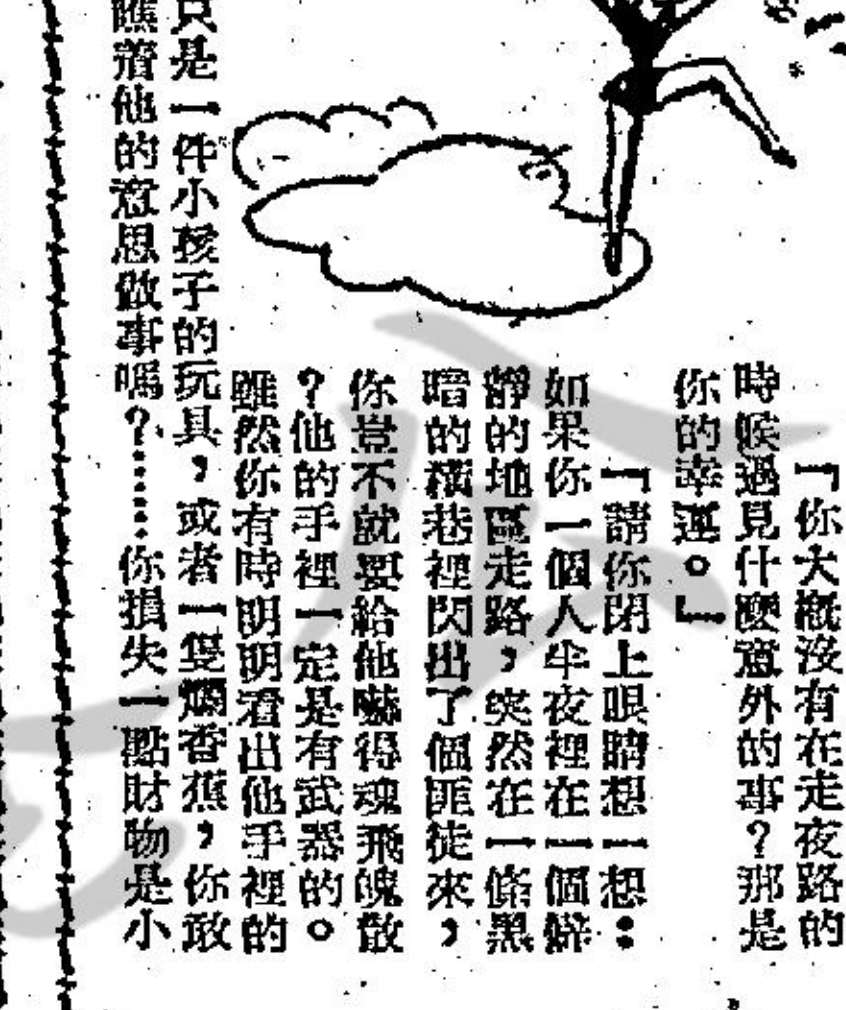 「你大概沒有在走夜路的
時候遇見什麼意外的事？那是
你的幸運。」
「請你閉上眼睛想一想：
如果你一個人半夜裡在一個僻
靜的地區走路，突然在一條黑
暗的橫巷裡閃出了個匪徒來，
你豈不就要給他嚇得魂飛魄散
？他的手裡一定是有武器的。
雖然你有時明明看出他手裡的
只是一件小孩子的玩具，或者一隻爛香蕉，你敢
瞧着他的意思做事嗎？……你損失一點財物是小